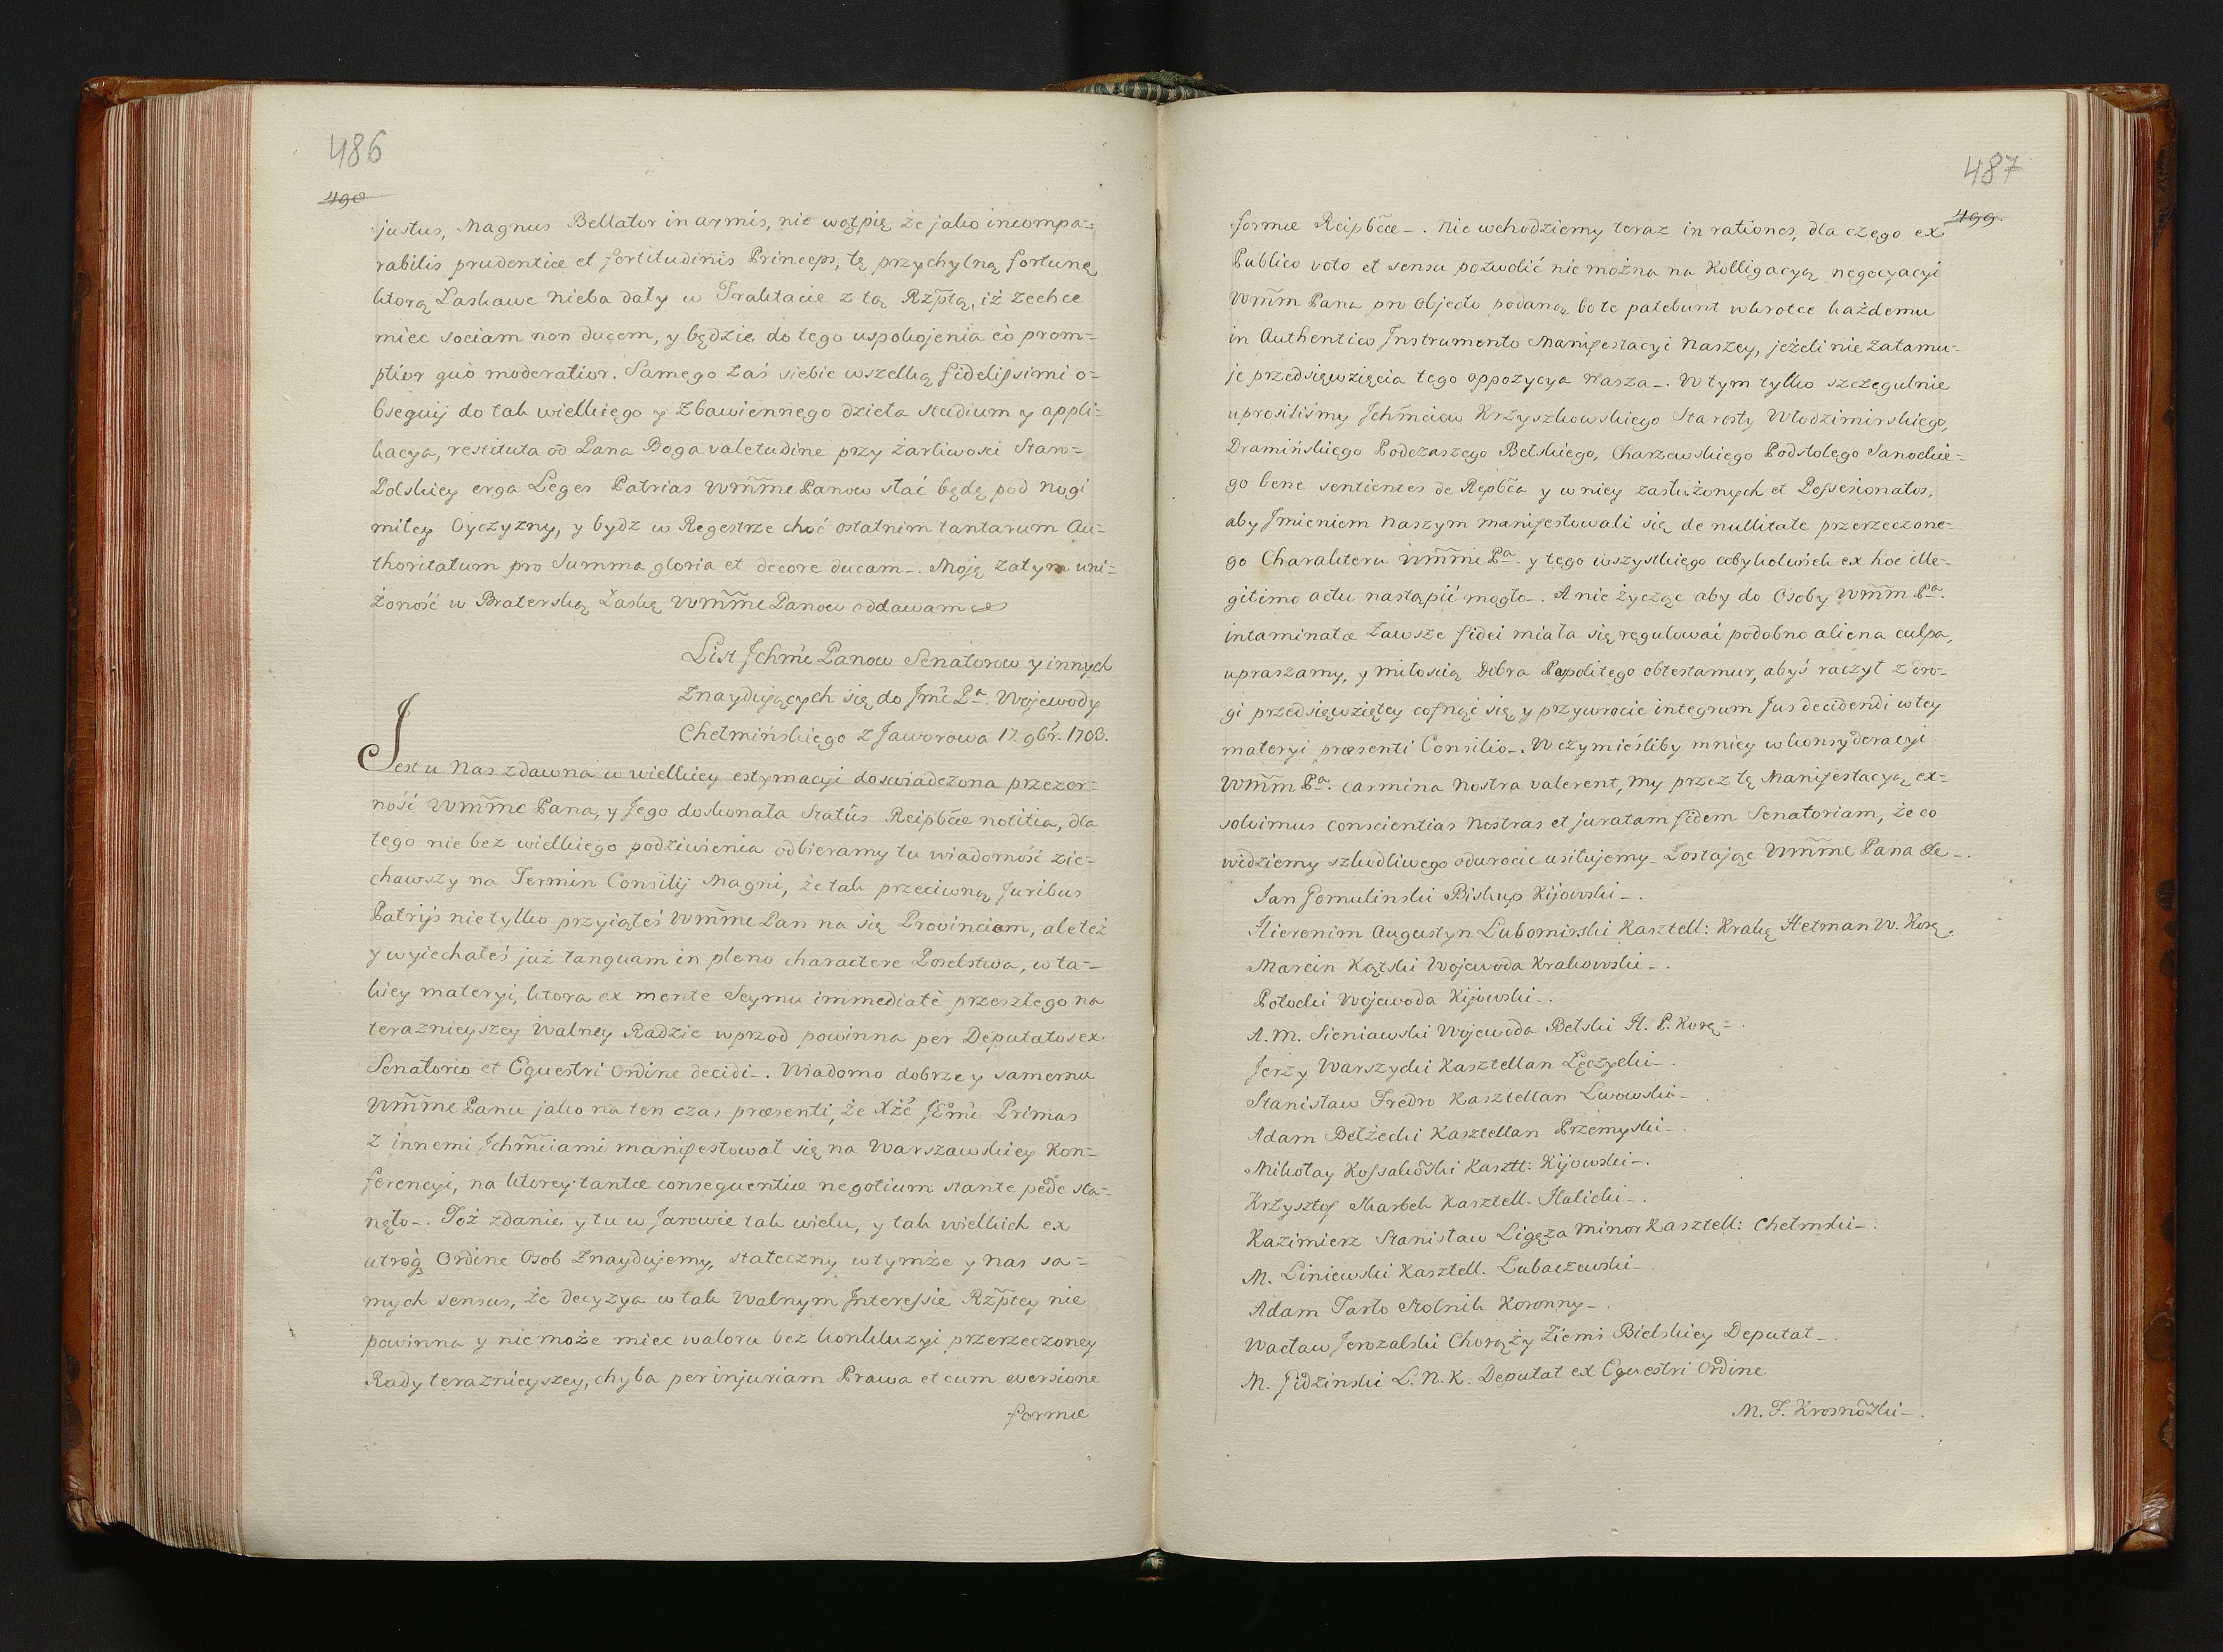 486
490
justus, Magnus Bellator in armis, nie wątpię że jako incompa=
rabilis prudentiæ et fortitudinis Princeps, tę przychylną fortunę
ktorą Łaskawe nieba dały w Traktacie z tą Rzptą, iż zechce
miec sociam non ducem, y będzie do tego uspokojenia eò prom=
ptior quò moderatior. Samego zaś siebie wszelką fidelissimi o=
bsequij do tak wielkiego y zbawiennego dzieła studium y appli=
kacya, restituta od Pana Boga valetudine przy żarliwosci Staro=
Polskiey erga Leges Patrias Wm̃me Panow stać będę pod nogi
miley Oyczyzny, y bydz w Regestrze choć ostatnim tantarum Au=
thoritatum pro Summa gloria et decore ducam_. Moję zatym uni=
żoność w Braterską Łaskę Wm̃me Panow oddawam
List Jchmć Panow Senatorow y innych
znaydujących się do Jmć Pa. Wojewody
Chełmińskiego z Jaworowa 17. 9br. 1703.
Jest u Nas zdawna w wielkiey estymacyi doswiadczona przezor=
ność Wm̃me Pana, y Jego doskonała Statûs Reipbcæ notitia, dla
tego nie bez wielkiego podziwienia odbieramy tu wiadomość zie=
chawszy na Termin Consilij Magni, że tak przeciwną Juribus
Patrijs nie tylko przyiąłeś Wm̃me Pan na się Provinciam, ale też
y wyiechałeś już tanquam in pleno charactere Poselstwa, w ta=
kiey materyi, ktora ex mente Seymu immediatè przeszłego na
teraznieyszey Walney Radzie wprzod powinna per Deputatos ex
Senatorio et Equestri Ordine decidi_. Wiadomo dobrze y samemu
Wm̃me Panu jako na ten czas præsenti, że Xżć JEmć Primas
z innemi Jchmćiami manifestował się na Warszawskiey Kon=
ferencyi, na ktorey tantæ consequentiæ negotium stante pede sta=
nęło_. Toż zdanie y tu w Jarowie tak wielu, y tak wielkich ex
utroq Ordine Osob znaydujemy, stateczny w tymże y nas sa=
mych sensus, że decyzya w tak Walnym Interessie Rzptey nie
powinna y nie może miec waloru bez konkluzyi przerzeczoney
Rady teraznieyszey, chyba per injuriam Prawa et cum eversione
formæ
487
499.
formæ Reipbcæ_. Nie wchodziemy teraz in rationes, dla czego ex
Publico voto et sensu pozwolić nie można na Kolligacyą negocyacyi
Wm̃m Pana pro Objecto podaną, bo te patebunt wkrotce każdemu
in Authentico Instrumento Manifestacyi Naszey, jeżeli nie zatamu=
je przedsięwzięcia tego oppozycya nasza_. W tym tylko szczegulnie
uprosiliśmy Jchmciow Krzyszkowskiego Starosty Włodzimirskiego,
Dramińskiego Podczaszego Bełskiego, Charzewskiego Podstolego Sanockie=
go bene sentientes de Repbca y w niey zasłużonych et Possesionatos,
aby Jmieniem Naszym manifestowali się de nullitate przerzeczone=
go Charakteru Wm̃me Pa. y tego wszystkiego cobykolwiek ex hoc ille=
gitimo actu nastąpić mogło_. A nie życząc aby do Osoby Wm̃m Pa.
intaminatæ zawsze fidei miała się regulowai podobno aliena culpa,
upraszamy, y miłością Dobra Pospolitego obtestamur, abyś raczył z dro=
gi przedsięwziętey cofnąć się, y przywrocic integrum Jus decidendi w tey
materyi præsenti Consilio_. W czymieśliby mniey w konsyderacyi
Wm̃m Pa. carmina Nostra valerent, my przez tę Manifestacyą ex=
solvimus conscientias Nostras et juratam fidem Senatoriam, że co
widziemy szkodliwego odwrocic usiłujemy_ Zostając Wm̃me Pana &c_.
Jan Gomulinski Biskup Kijowski_.
Hieronim Augustyn Lubomirski Kasztell: Krakę Hetman W. Korę.
Marcin Kątski Wojewoda Krakowski_.
Potocki Wojewoda Kijowski_.
A. M. Sieniawski Wojewoda Bełski H. P. Korę_.
Jerzy Warszycki Kasztellan Łęczycki_.
Stanisław Fredro Kasztellan Lwowski_
Adam Bełżecki Kasztellan Przemyski_.
Mikołay Kossakowski Kasztt: Kijowski_.
Krzysztof Skarbek Kasztell. Halicki_.
Kazimierz Stanisław Ligęza Minor Kasztell: Chełmski_.
M. Liniewski Kasztell. Lubaczewski_
Adam Tarło Stolnik Koronny_.
Wacław Jerozalski Chorąży Ziemi Bielskiey Deputat_.
M. Jidzinski L. N. K. Deputat ex Equestri Ordine
M. F. Krosnowski_.